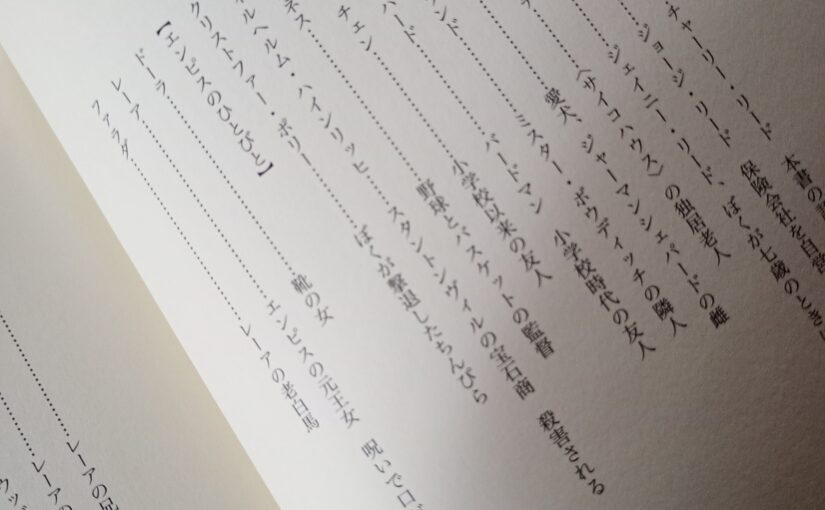 チャーリー・リード 本書の
ジョージ・リード 保険会社を自営
ジェイニー・リード、ぼくが七歳のとき
〈サイコハウス〉の独居老人
愛犬、ジャーマンシェパードの雌
ンド……………ミスター・ボウディッチの隣人
ード……………バードマン 小学校時代の友人
チェン……………小学校以来の友人
ネス……………野球とバスケットの監督
ルヘルム・ハインリッヒ……スタントンヴィルの宝石商 殺害される
クリストファー・ポリー……………ぼくが撃退したちんぴら
【エンピスのひとびと】
ドーラ……………靴の女
レーア……………エンピスの元王女 呪いで口
ファラダ……………レーアの老白馬
……………レーアの兄
……………レーアの
ウッ